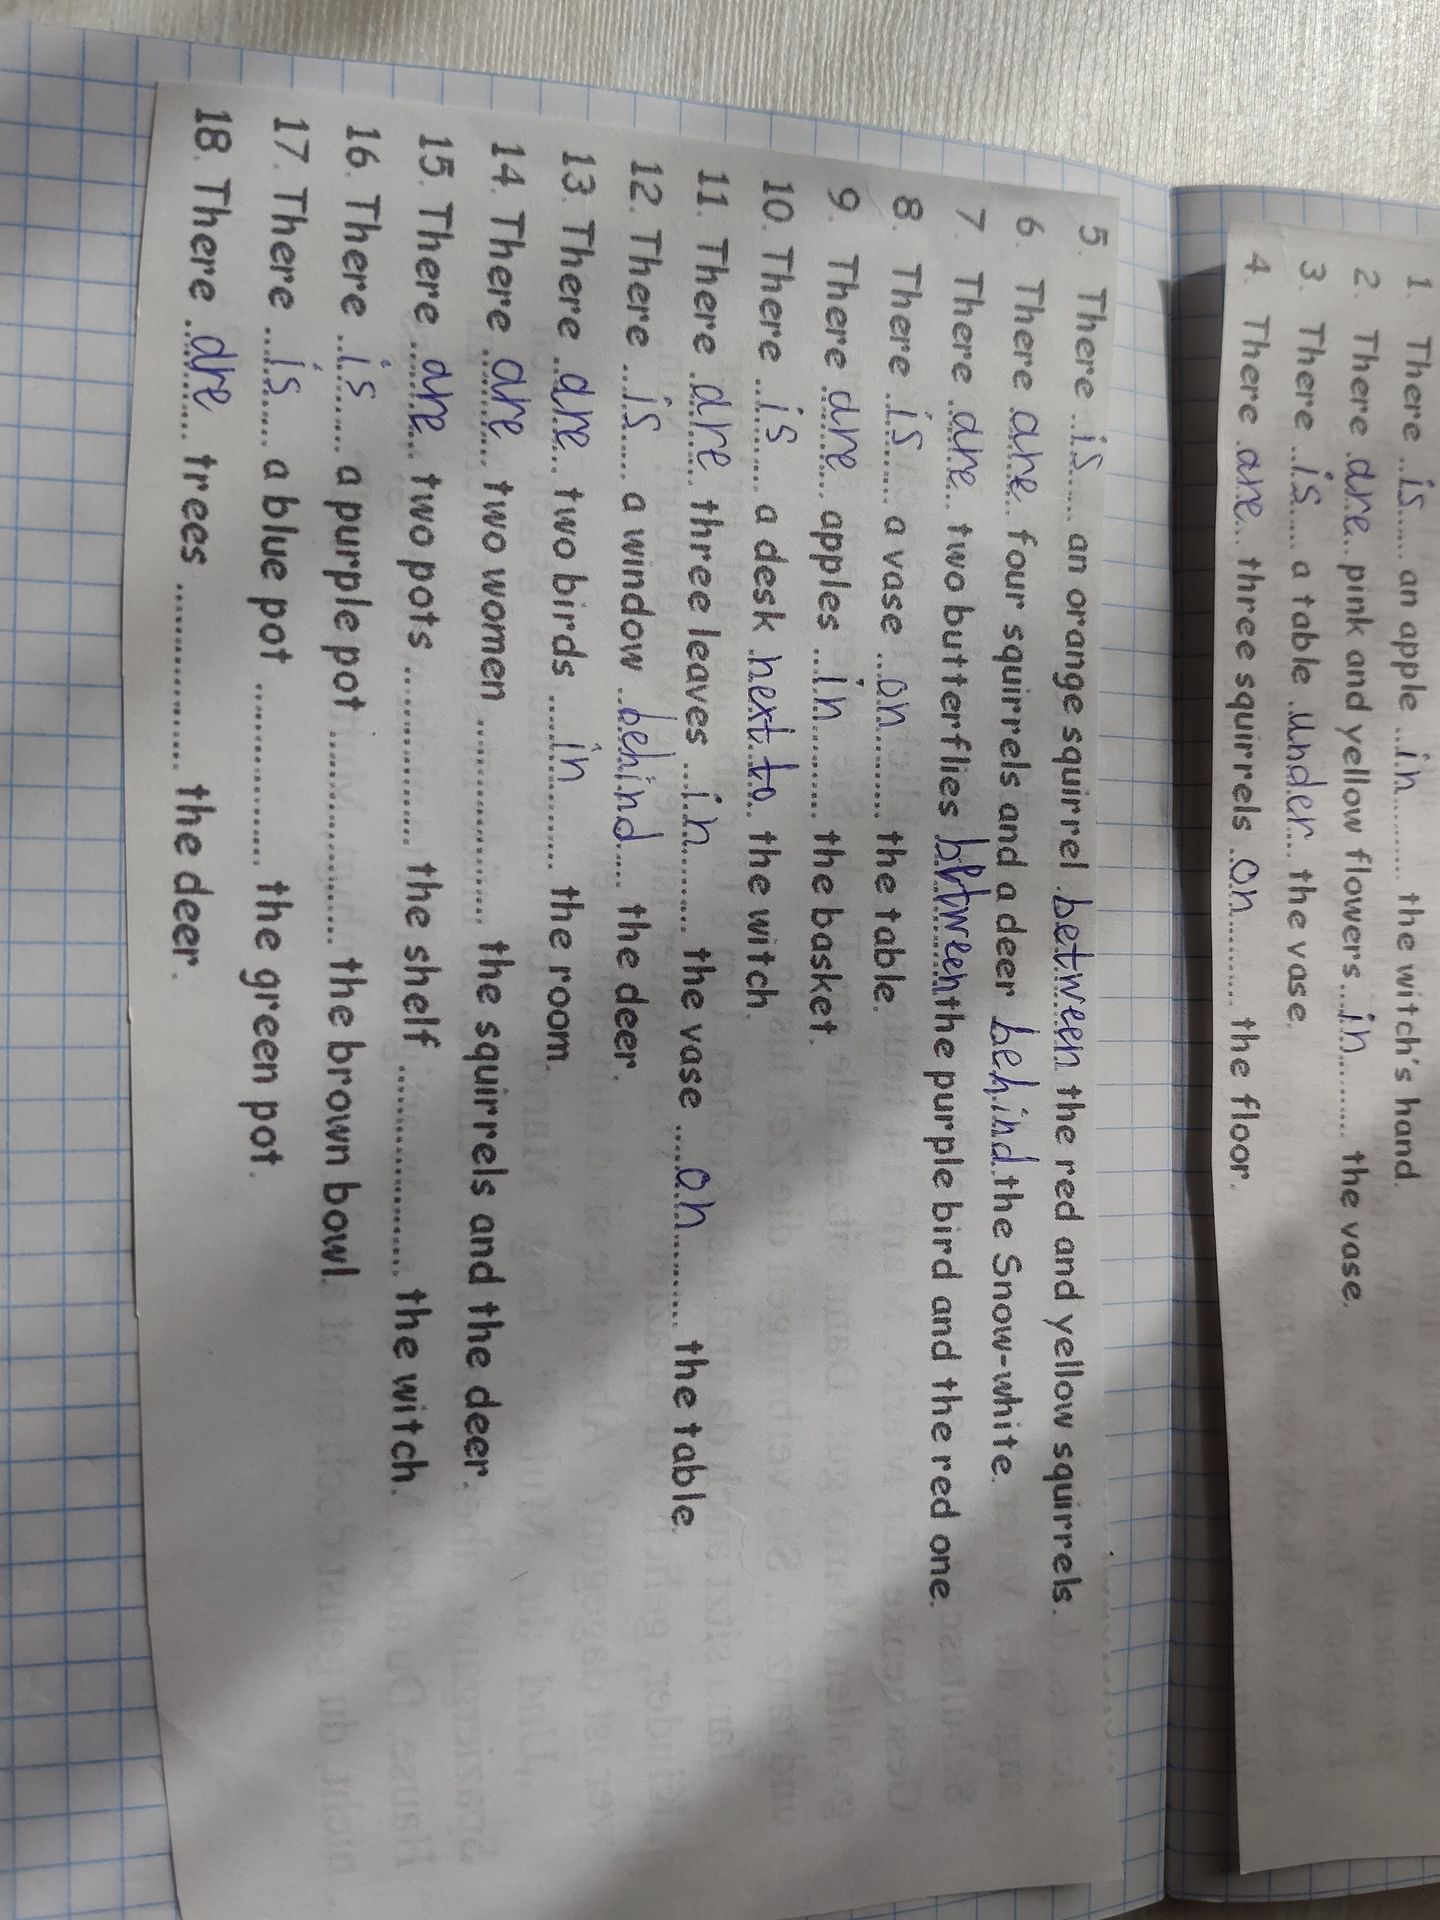 1. There ..is...... an apple ...in.......... the witch's hand.
2. There .are.. pink and yellow flowers...in......... the vase.
3. There ..is...... a table .under... the vase.
4. There .are... three squirrels ..on.......... the floor.
5. There ...is...... an orange squirrel .between the red and yellow squirrels.
6. There are... four squirrels and a deer behind..the Snow-white.
7. There ..are... two butterflies between the purple bird and the red one.
8. There ..is........ a vase ...on........... the table.
9. There .are.... apples ...in........... the basket.
10. There ...is....... a desk .next to.. the witch.
11. There ..are..... three leaves ...in.......... the vase ....on............ the table.
12. There ...is...... a window ..behind.... the deer.
13. There ..are... two birds .....in........... the room.
14. There ...are..... two women ........................ the squirrels and the deer.
15. There ..are.... two pots ........................ the shelf ........................ the witch.
16. There ..is....... a purple pot ........................ the brown bowl.
17. There ...is...... a blue pot .................... the green pot.
18. There ..are.... trees .................... the deer.